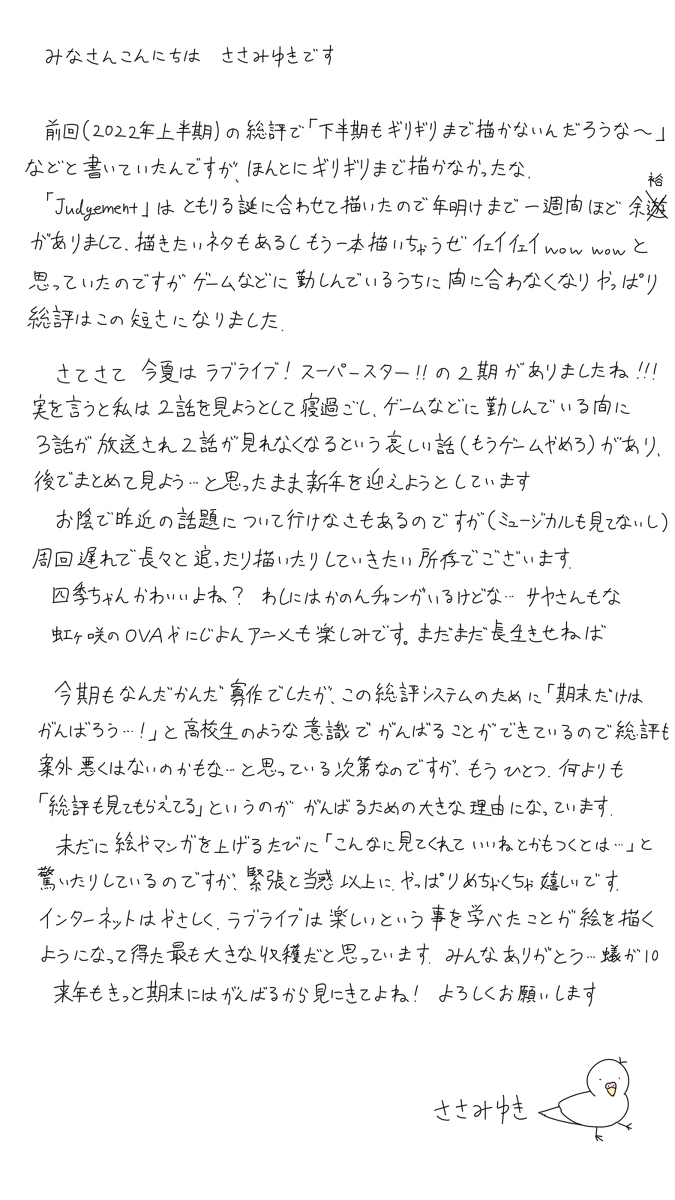 みなさんこんにちは ささみゆきです
前回(2022年上半期)の総評で「下半期もギリギリまで描かないんだろうな〜」
などと書いていたんですが、ほんとにギリギリまで描かなかったな.
「Judgement」はともりる誕に合わせて描いたので年明けまで一週間ほど余裕
がありまして、描きたいネタもあるしもう一本描いちゃうぜ イェイイェイ wow wow と
思っていたのですがゲームなどに勤しんでいるうちに間に合わなくなりやっぱり
総評はこの短さになりました.
さてさて 今夏はラブライブ!スーパースター!!の2期がありましたね!!!
実を言うと私は2話を見ようとして寝過ごし、ゲームなどに勤しんでいる間に
3話が放送され2話が見れなくなるという哀しい話(もうゲームやめろ)があり、
後でまとめて見よう…と思ったまま新年を迎えようとしています
お陰で昨近の話題について行けなさもあるのですが(ミュージカルも見てないし)
周回遅れで長々と追ったり描いたりしていきたい所存でございます.
四季ちゃんかわいいよね? わしにはかのんチャンがいるけどな… サヤさんもな
虹ヶ咲のOVAやにじよんアニメも楽しみです。まだまだ長生きせねば
今期もなんだかんだ寡作でしたが、この総評システムのために「期末だけは
がんばろう…!」と高校生のような意識でがんばることができているので総評も
案外悪くはないのかもな…と思っている次第なのですが、もうひとつ、何よりも
「総評も見てもらえてる」というのががんばるための大きな理由になっています.
未だに絵やマンガを上げるたびに「こんなに見てくれていいねとかもつくとは…」と
驚いたりしているのですが、緊張と当惑以上に、やっぱりめちゃくちゃ嬉しいです.
インターネットはやさしく、ラブライブは楽しいという事を学べたことが絵を描く
ようになって得た最も大きな収穫だと思っています. みんなありがとう…蟻が10
来年もきっと期末にはがんばるから見にきてよね! よろしくお願いします
ささみゆき